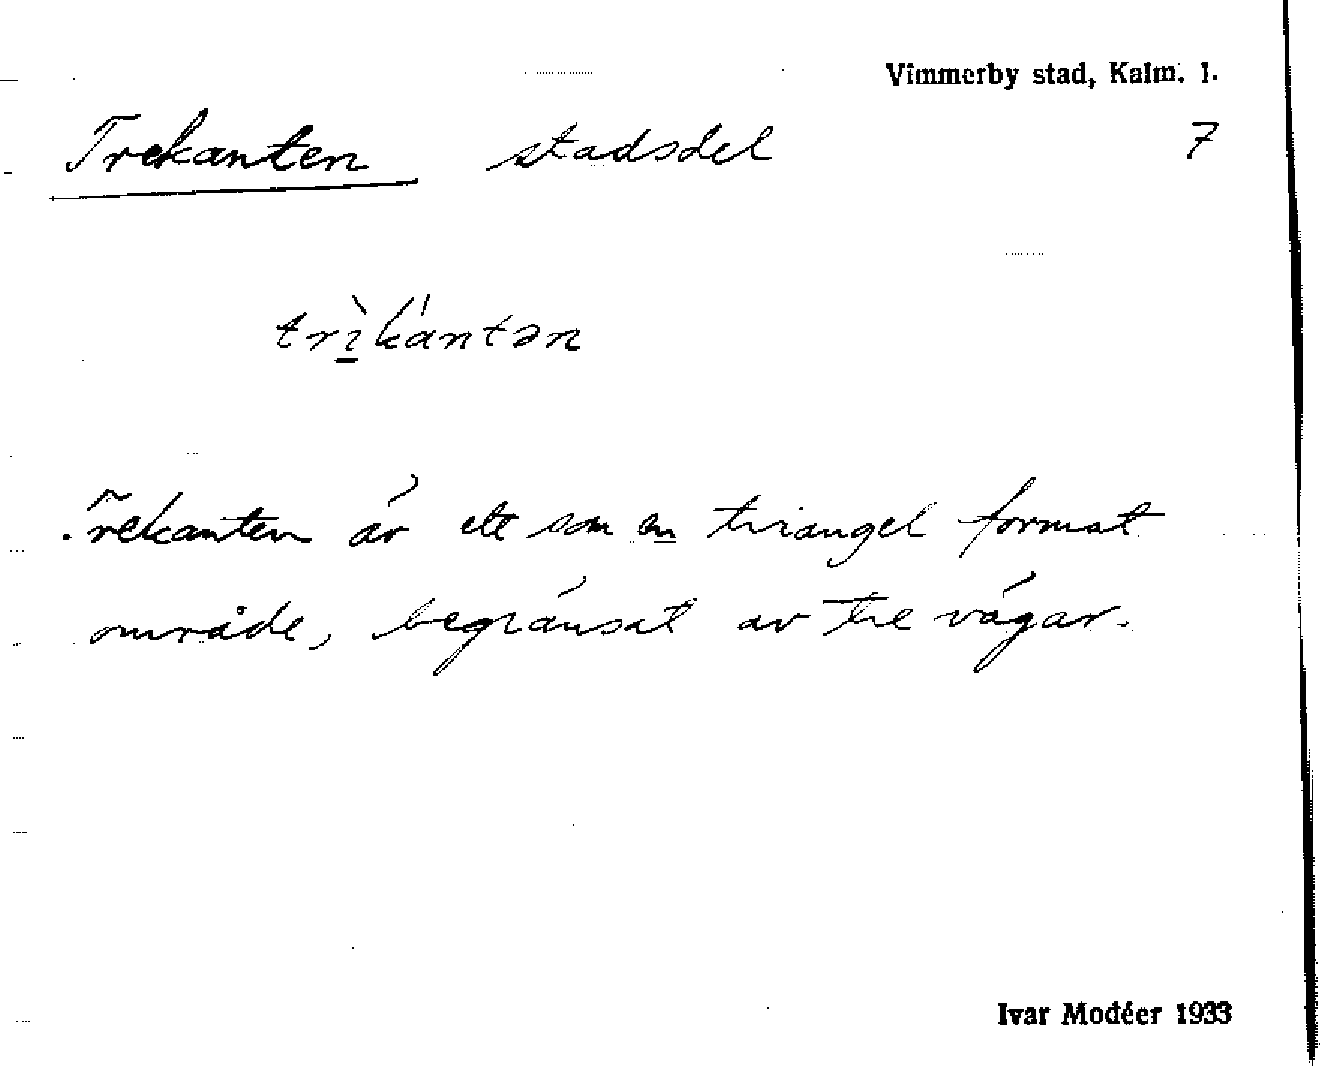 Vimmerby stad, Kalm. l.
Trekanten stadsdel 7
trìkántən
Trekanten är ett som en triangel format
område, begränsat av tre vägar.
Ivar Modéer 1933